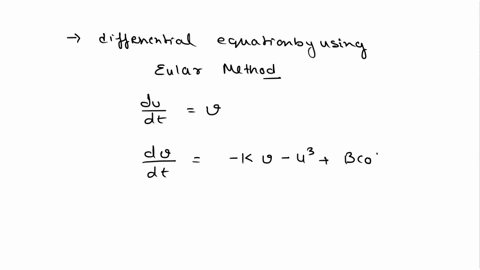 → differential equation by using
Eular Method
du/dt = v
dv/dt = -K v - u³ + Bco